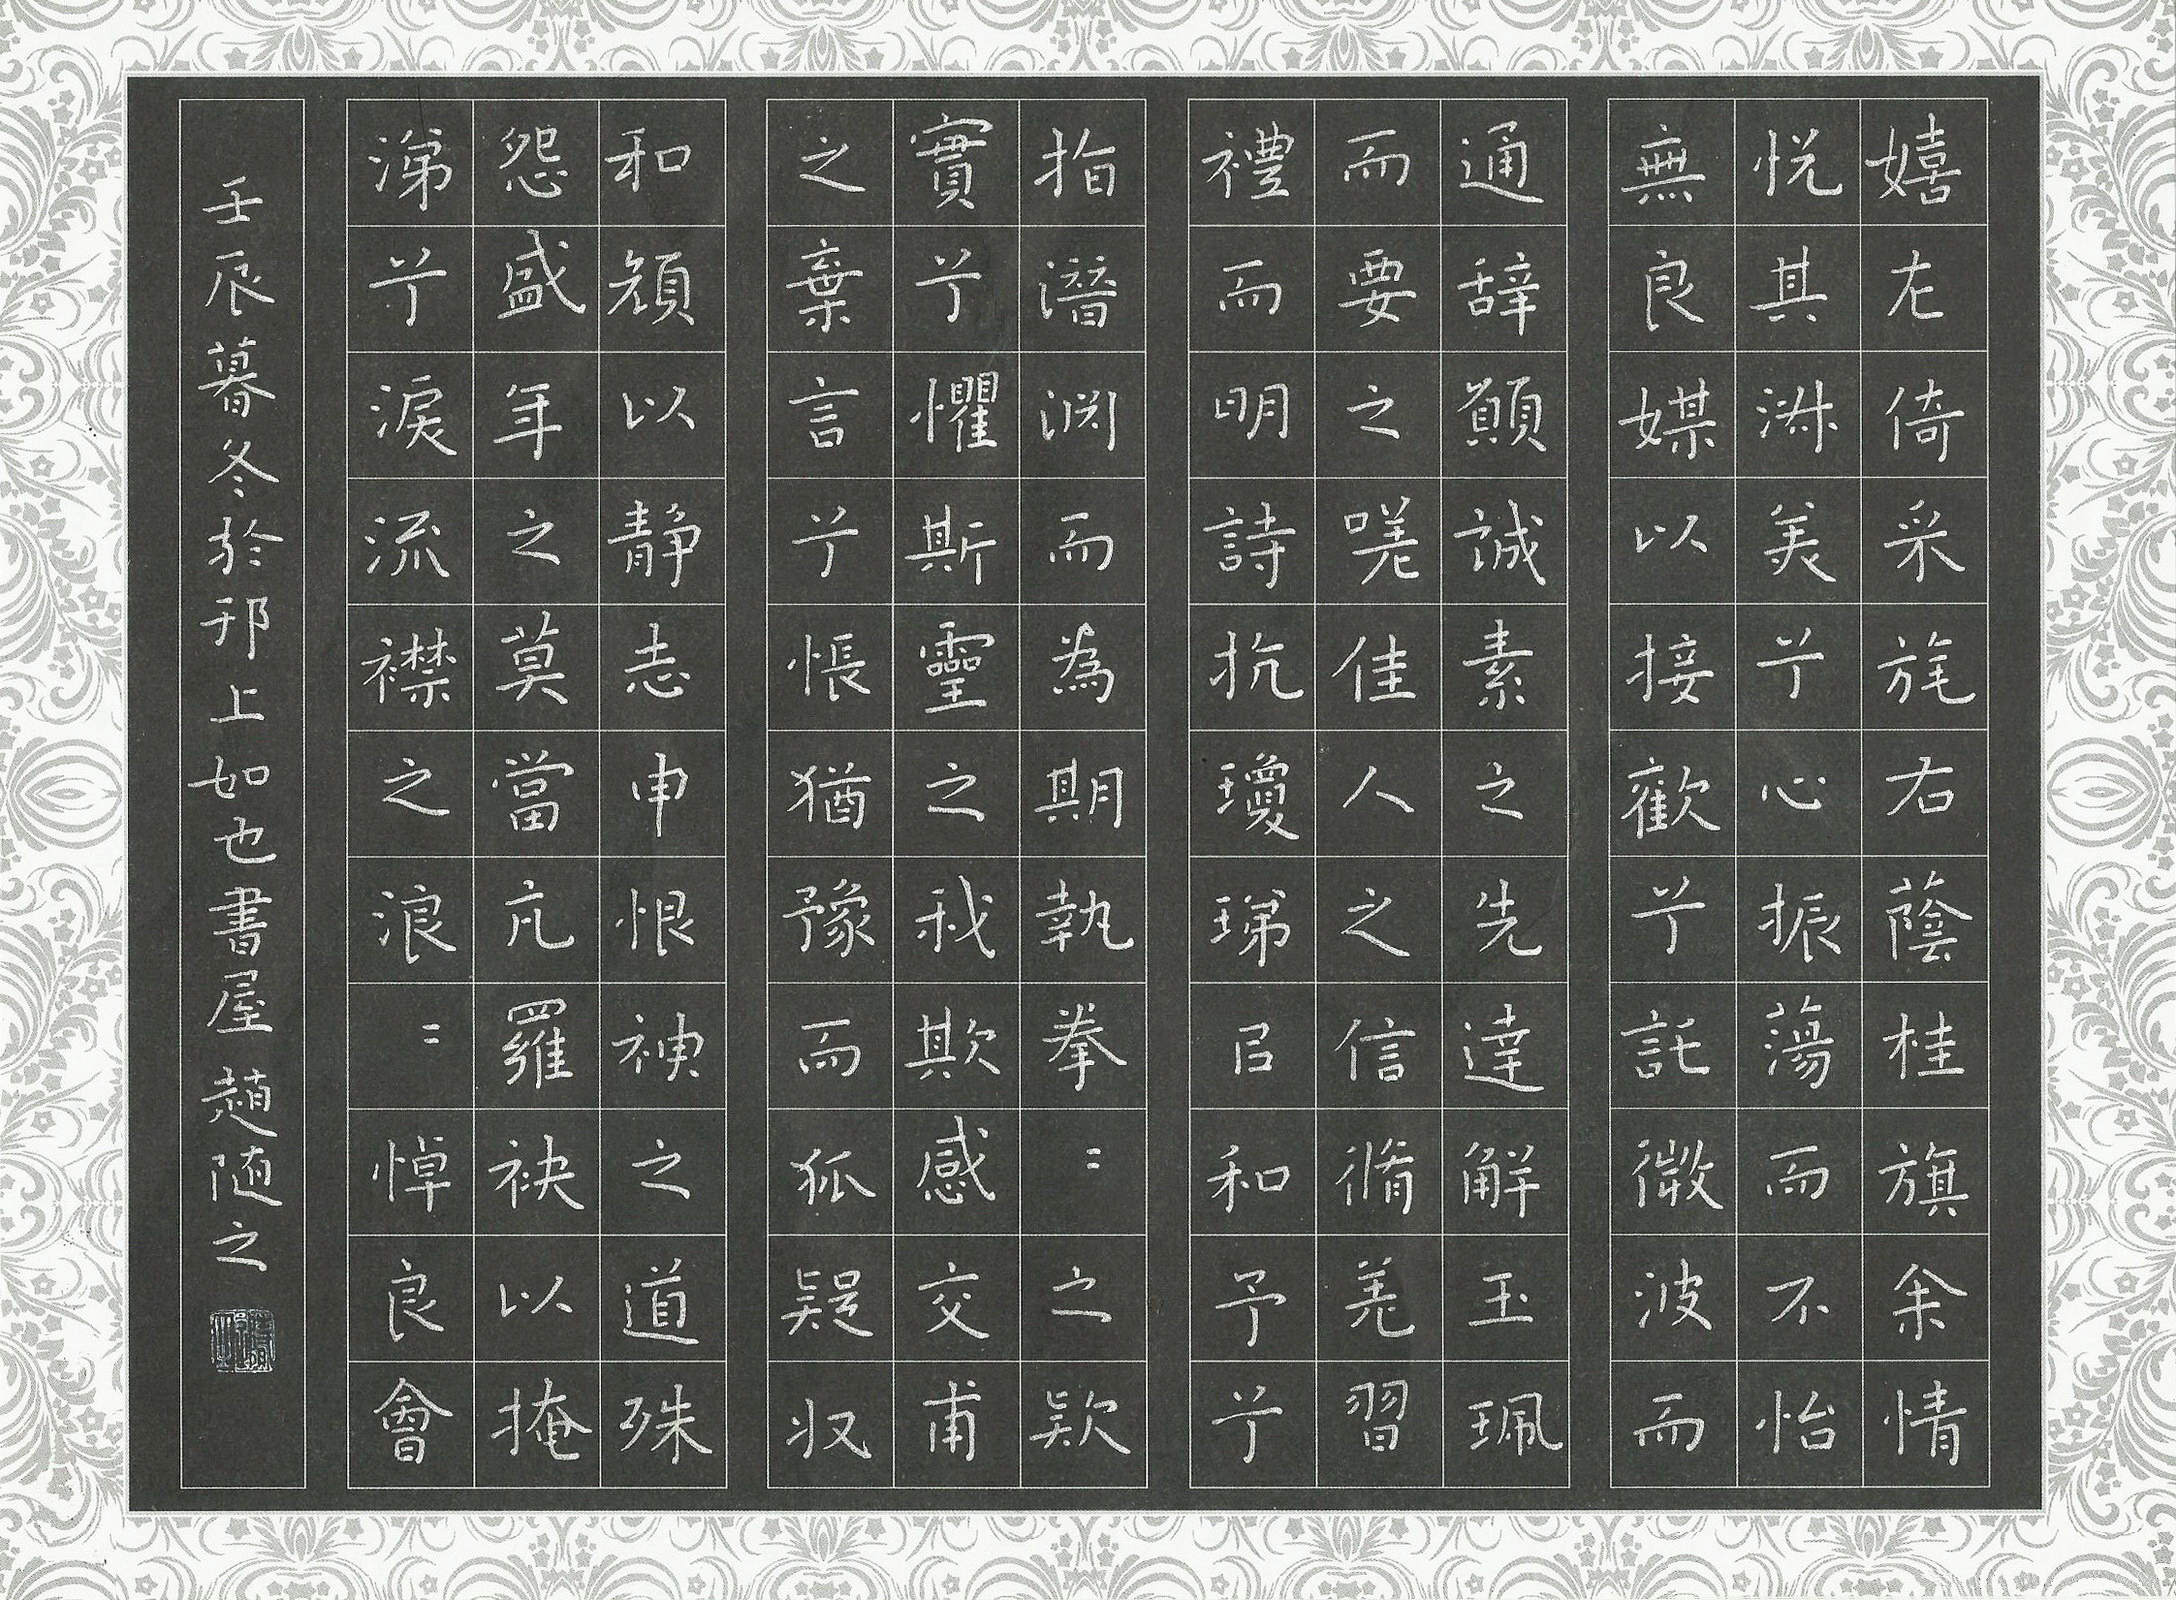 嬉左倚采旄右蔭桂旗余情
悦其淑美兮心振蕩而不怡
無良媒以接歡兮託微波而
通辞願誠素之先達解玉珮
而要之嗟佳人之信脩羌習
禮而明詩抗瓊珶㠯和予兮
指潛渊而為期執拳=之欵
實兮懼斯靈之我欺感交甫
之棄言兮悵猶豫而狐疑収
和顏以静志申恨神之道殊
怨盛年之莫當亢羅袂以掩
涕兮淚流襟之浪=悼良會
壬辰暮冬於邗上如也書屋趙随之